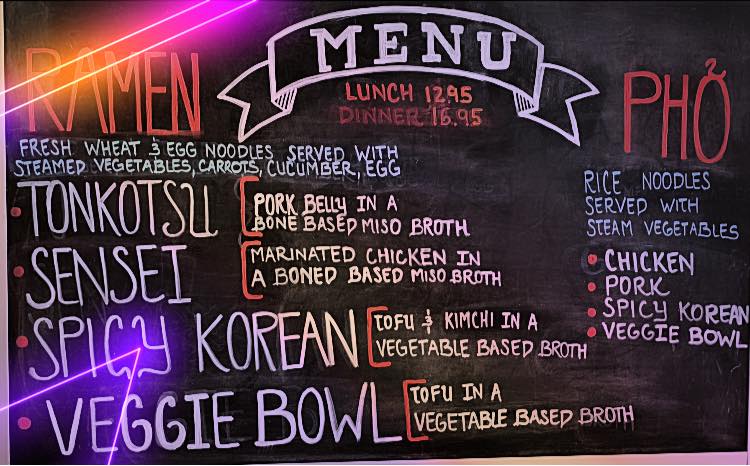 MENU
LUNCH 12.95
DINNER 16.95
RAMEN
FRESH WHEAT & EGG NOODLES SERVED WITH
STEAMED VEGETABLES, CARROTS, CUCUMBER, EGG
TONKOTSU
PORK BELLY IN A
BONE BASED MISO BROTH
SENSEI
MARINATED CHICKEN IN
A BONED BASED MISO BROTH
SPICY KOREAN
TOFU & KIMCHI IN A
VEGETABLE BASED BROTH
VEGGIE BOWL
TOFU IN A
VEGETABLE BASED BROTH
PHỞ
RICE NOODLES
SERVED WITH
STEAM VEGETABLES
CHICKEN
PORK
SPICY KOREAN
VEGGIE BOWL